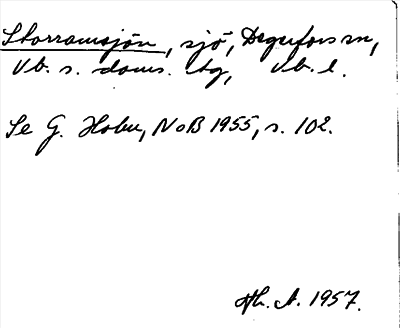 Storramsjön, sjö, Degerfors sn,
Vb. s. doms. tg, Vb. l.
Se G. Holm, NoB 1955, s. 102.
Hh. A. 1957.